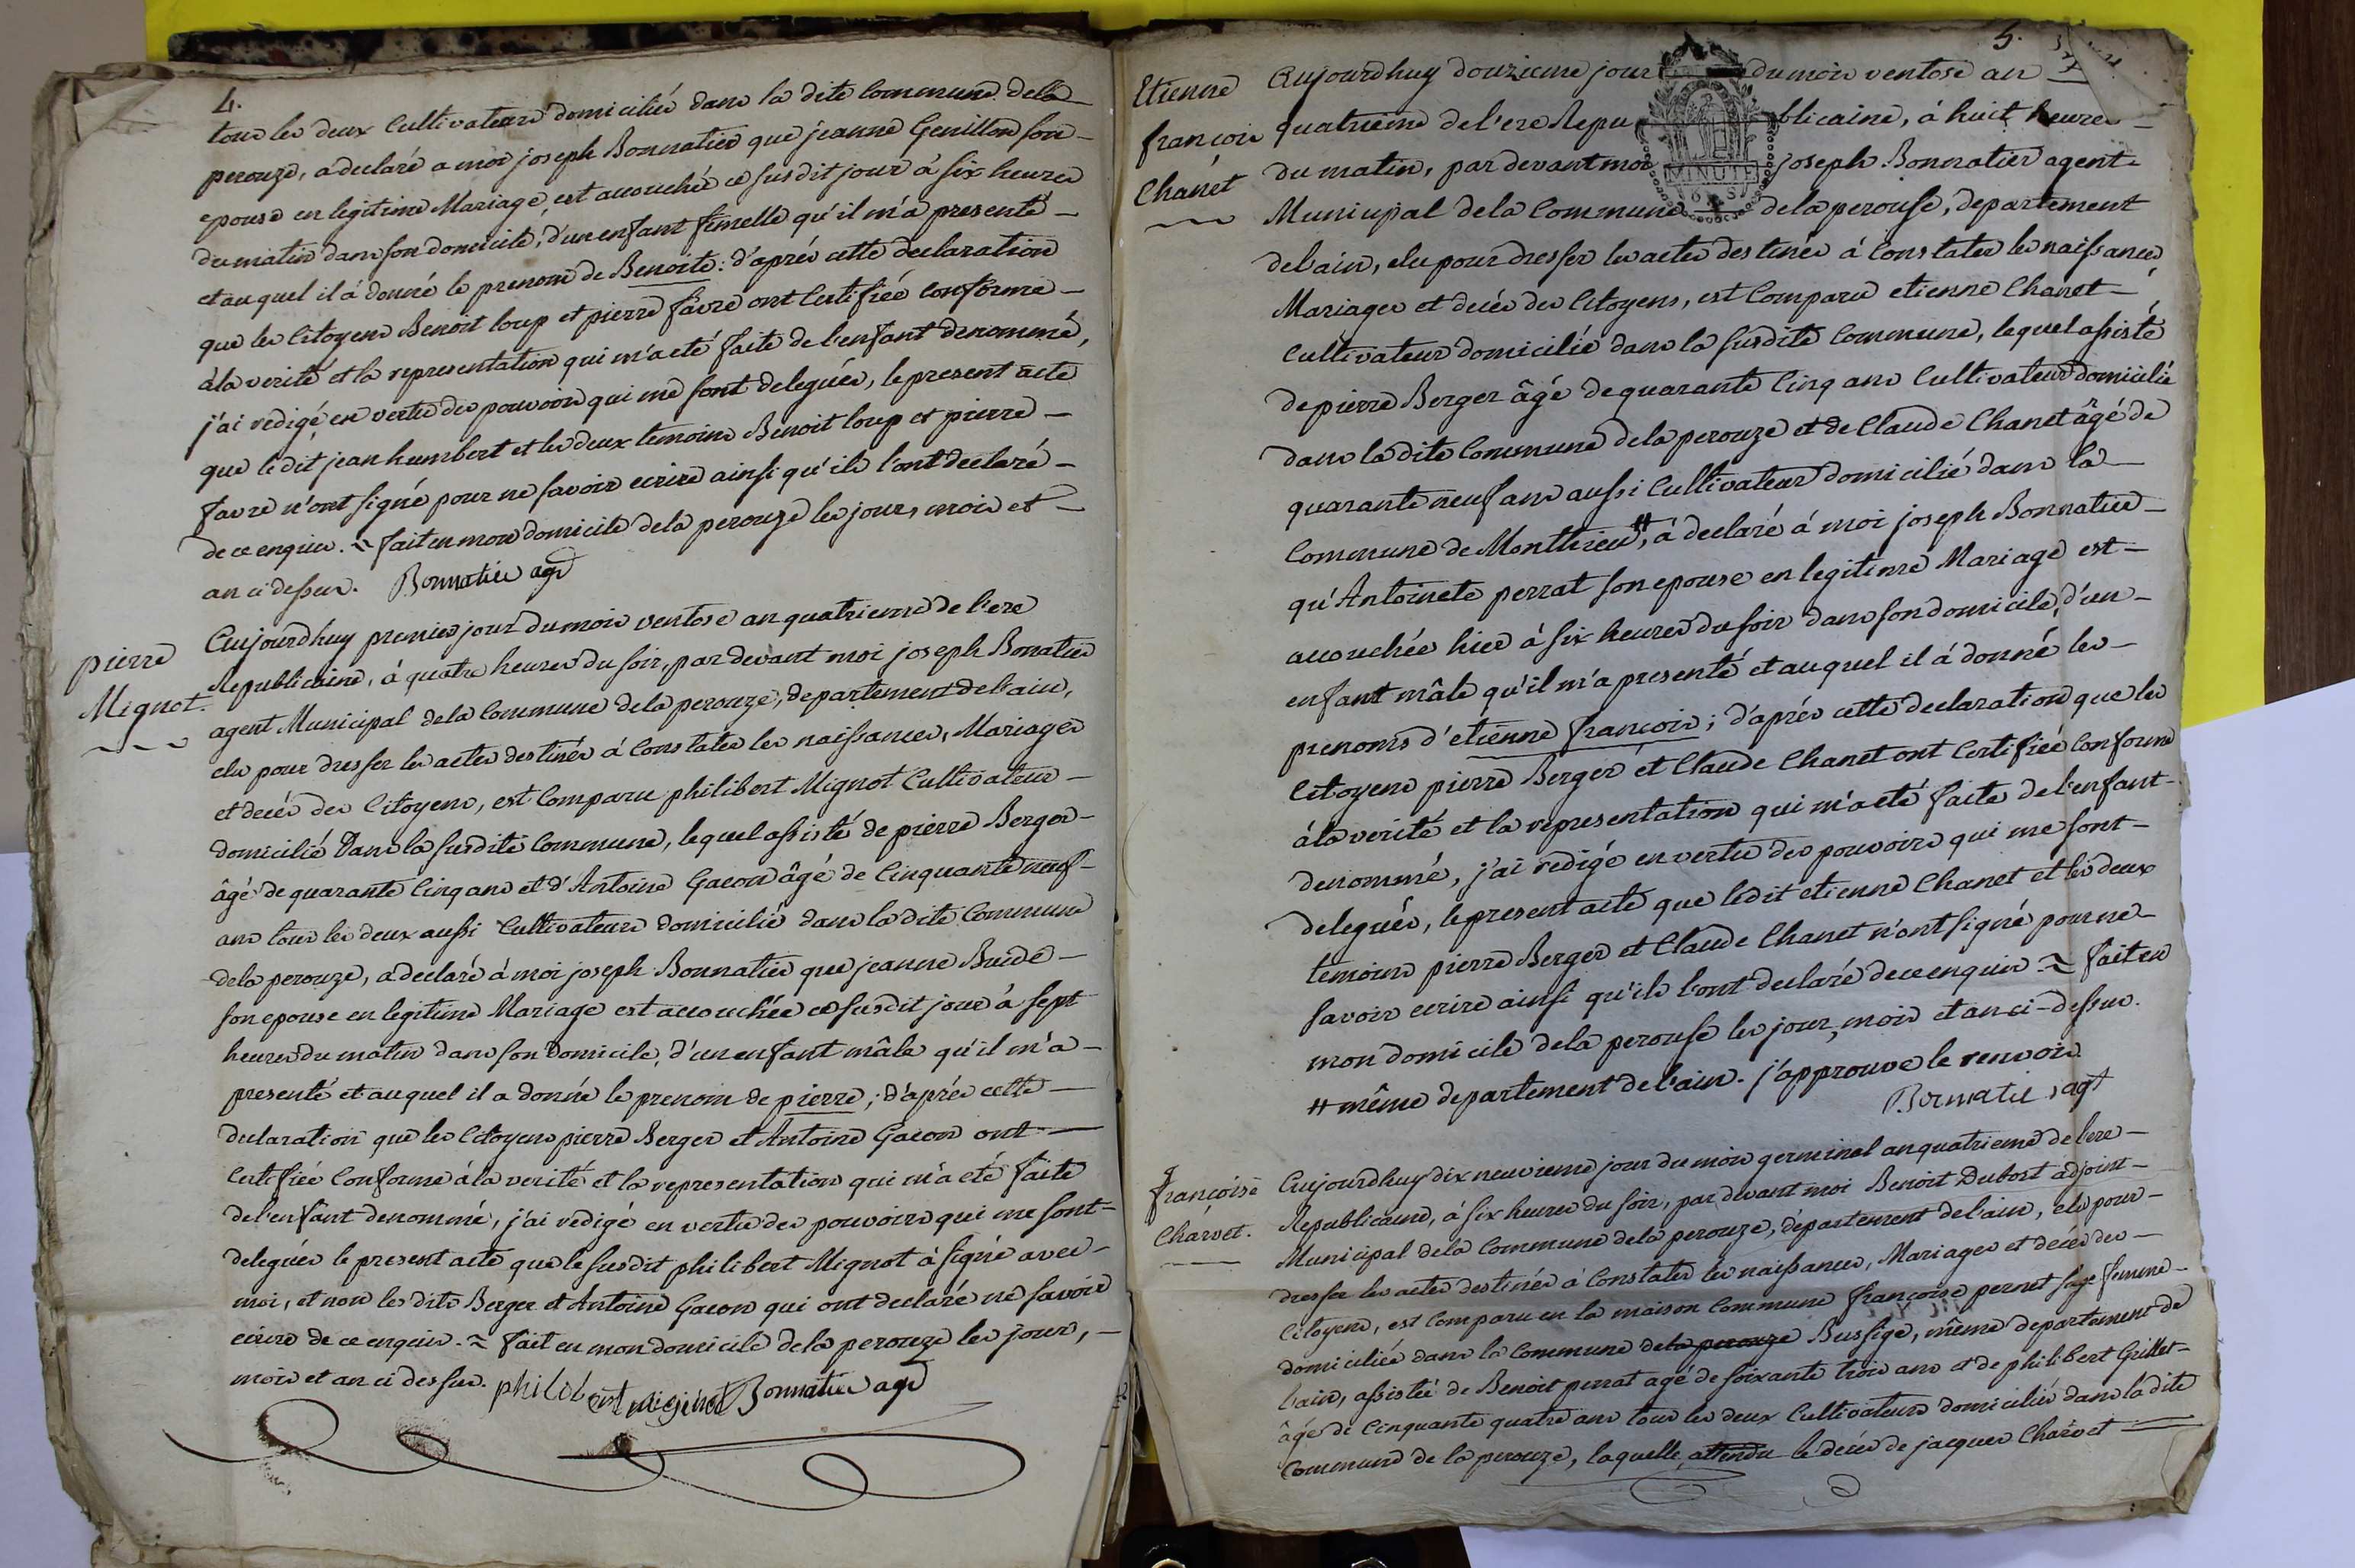 4.
tous les deux Cultivateurs domiciliés dans la dite Commune dela
perouze, a declaré a moi joseph Bonnatier que jeanne Genillon son
epouse en legitime Mariage, est accouchée ce susdit jour à six heures
du matin dans son domicile, d'un enfant femelle qu'il m'a presenté
et auquel il a donné le prenom de Benoite: d'après cette declaration
que les Citoyens Benoit loup et pierre favre ont Certifiée Conforme
à la verité et la representation qui m'a eté faite de l'enfant denommé,
j'ai redigé en vertu des pouvoirs qui me sont delegués, le present acte
que ledit jean humbert et les deux temoins Benoit loup et pierre
favre n'ont signé pour ne savoir ecrire ainsi qu'ils l'ont declaré
de ce enquis. ~ fait en mon domicile dela perouze les jour, mois et
an ci dessus. Bonnatier agt
pierre
Mignot.
Aujourdhuy premier jour du mois ventose an quatrieme de l'ere
Republicaine, à quatre heures du soir, par devant moi joseph Bonatier
agent Municipal dela Commune dela perouze, departement de l'ain,
elu pour dresser les actes destinés à Constater les naissances, Mariages
et decés des Citoyens, est Comparu philibert Mignot Cultivateur
domicilié Dans la susdite Commune, lequel assisté de pierre Berger
âgé de quarante Cinq ans et d'Antoine Gacon âgé de Cinquante neuf
ans tous les deux aussi Cultivateurs domiciliés dans la dite Commune
dela perouze, a declaré à moi joseph Bonnatier que jeanne
son epouse en legitime Mariage est accouchée ce susdit jour à sept
heures du matin dans son Domicile, d'un enfant mâle qu'il m'a
presenté et auquel il a donné le prenom de pierre; d'après cette
declaration que les Citoyens pierre Berger et Antoine Gacon ont
Certifiée Conforme à la verité et la representation qui m'a eté faite
de l'enfant denommé, j'ai redigé en vertu des pouvoirs qui me sont
delegués le present acte que le susdit philibert Mignot à signé avec
moi, et non les dits Berger et Antoine Gacon qui ont declaré ne savoir
ecrire de ce enquis. ~ fait en mon domicile dela perouze les jour,
mois et an ci dessus. philibert mignot Bonnatier agt
5.
Etienne
françois
Chanet
Aujourdhuy douzieme jour du mois ventose an
quatrieme de l'ere Republicaine, à huit heures
du matin, par devant moi joseph Bonnatier agent
MINUTE
Municipal dela Commune dela perouse, departement
del'ain, elu pour dresser les actes destinés à Constater les naissances
Mariages et decés des Citoyens, est Comparu etienne Chanet
Cultivateur domicilié dans la susdite Commune, lequel assisté
de pierre Berger âgé de quarante Cinq ans Cultivateur domicilié
dans la dite Commune dela perouze et de Claude Chanet âgé de
quarante neuf ans aussi Cultivateur domicilié dans la
Commune de Monthieu, # à declaré à moi joseph Bonnatier
qu'Antoinete perrat son epouse en legitime Mariage est
accouchée hier à six heures du soir dans son domicile, d'un
enfant mâle qu'il m'a presenté et auquel il à donné les
prenoms d'etienne françois; d'après cette declaration que les
Citoyens pierre Berger et Claude Chanet ont Certifiée Conforme
à la verité et la representation qui m'a eté faite de l'enfant
denommé, j'ai redigé en vertu des pouvoirs qui me sont
delegués, le present acte que ledit etienne Chanet et les deux
temoins pierre Berger et Claude Chanet n'ont signé pour ne
savoir ecrire ainsi qu'ils l'ont declaré de ce enquis ~ fait en
mon domicile dela perouse les jour, mois et an ci-dessus.
# même departement de l'ain. j'approuve le renvois
Bonnatier agt
françoise
Charvet.
Aujourdhuy dix neuvieme jour du mois germinal an quatrieme de l'ere
Republicaine, à six heures du soir, par devant moi Benoit Dubost adjoint
Municipal dela Commune dela perouze, departement de l'ain, elu pour
dresser les actes destinés à Constater les naissances, Mariages et decés des
Citoyens, est Comparu en la maison Commune françoise pernet sage femme
domiciliée dans la Commune dela perouze Bussige, même departement de
l'ain, assistée de Benoit perrat agé de soixante trois ans et de philibert Grillet
âgé de Cinquante quatre ans tous les deux Cultivateurs domiciliés dans la dite
Commune de la perouze, laquelle, attendu le decés de jacques Charvet